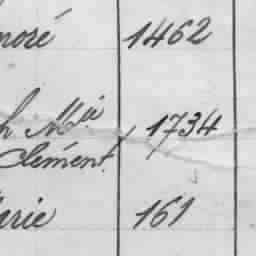 noré 1462
h Mie 1734
Clément
arie 161